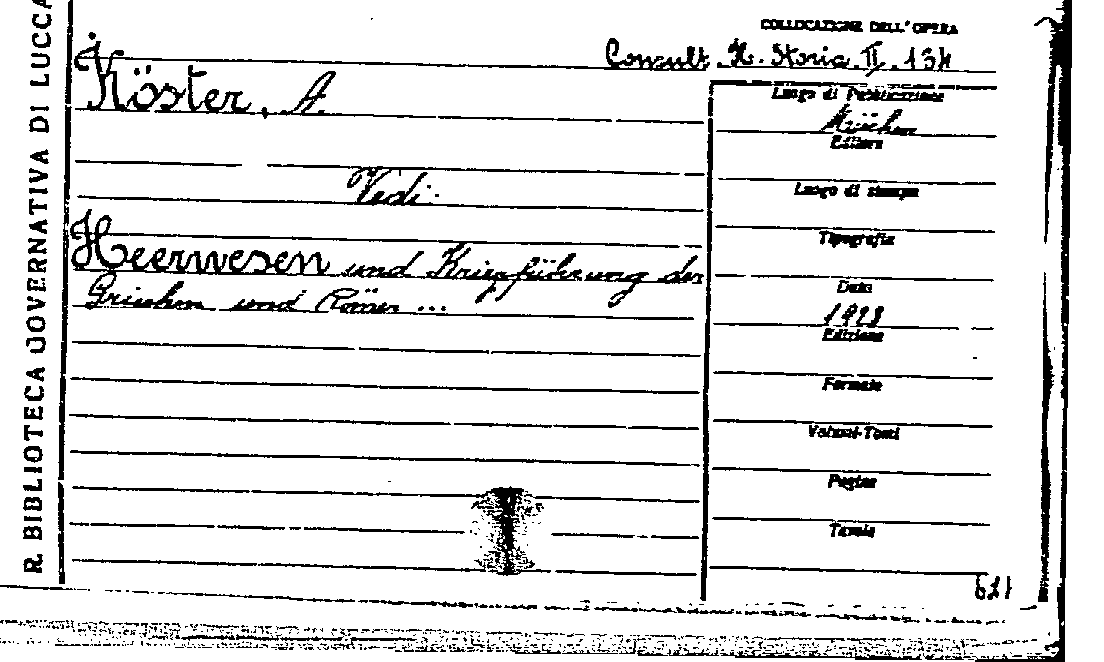 R. BIBLIOTECA GOVERNATIVA DI LUCCA
COLLOCAZIONE DELL'OPERA
Consult. H. Storia II. 134
Köster, A.
Vedi:
Heerwesen und Kriegführung der
Griechen und Römer ...
Luogo di Pubblicazione
München
Editore
Luogo di stampa
Tipografia
Data
1928
Edizione
Formato
Volumi-Tomi
Pagine
Tavole
621